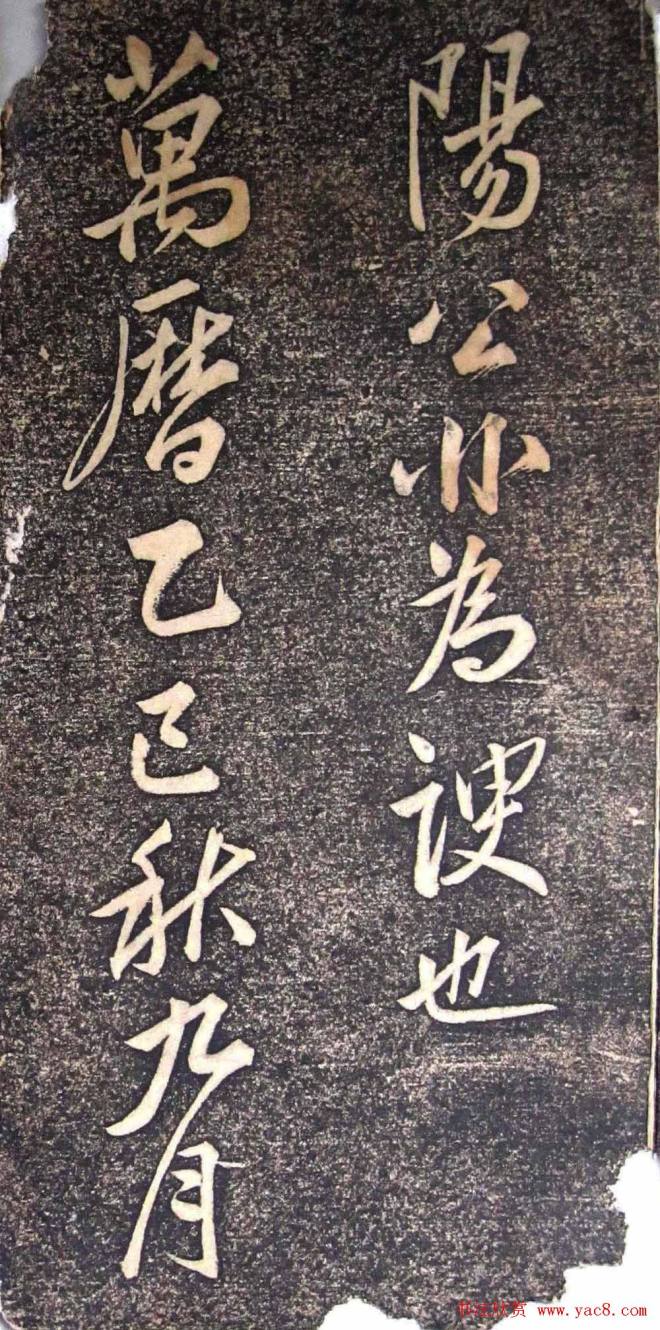 陽公非為諛也
萬曆乙巳秋九月
书法欣赏 www.yac8.com